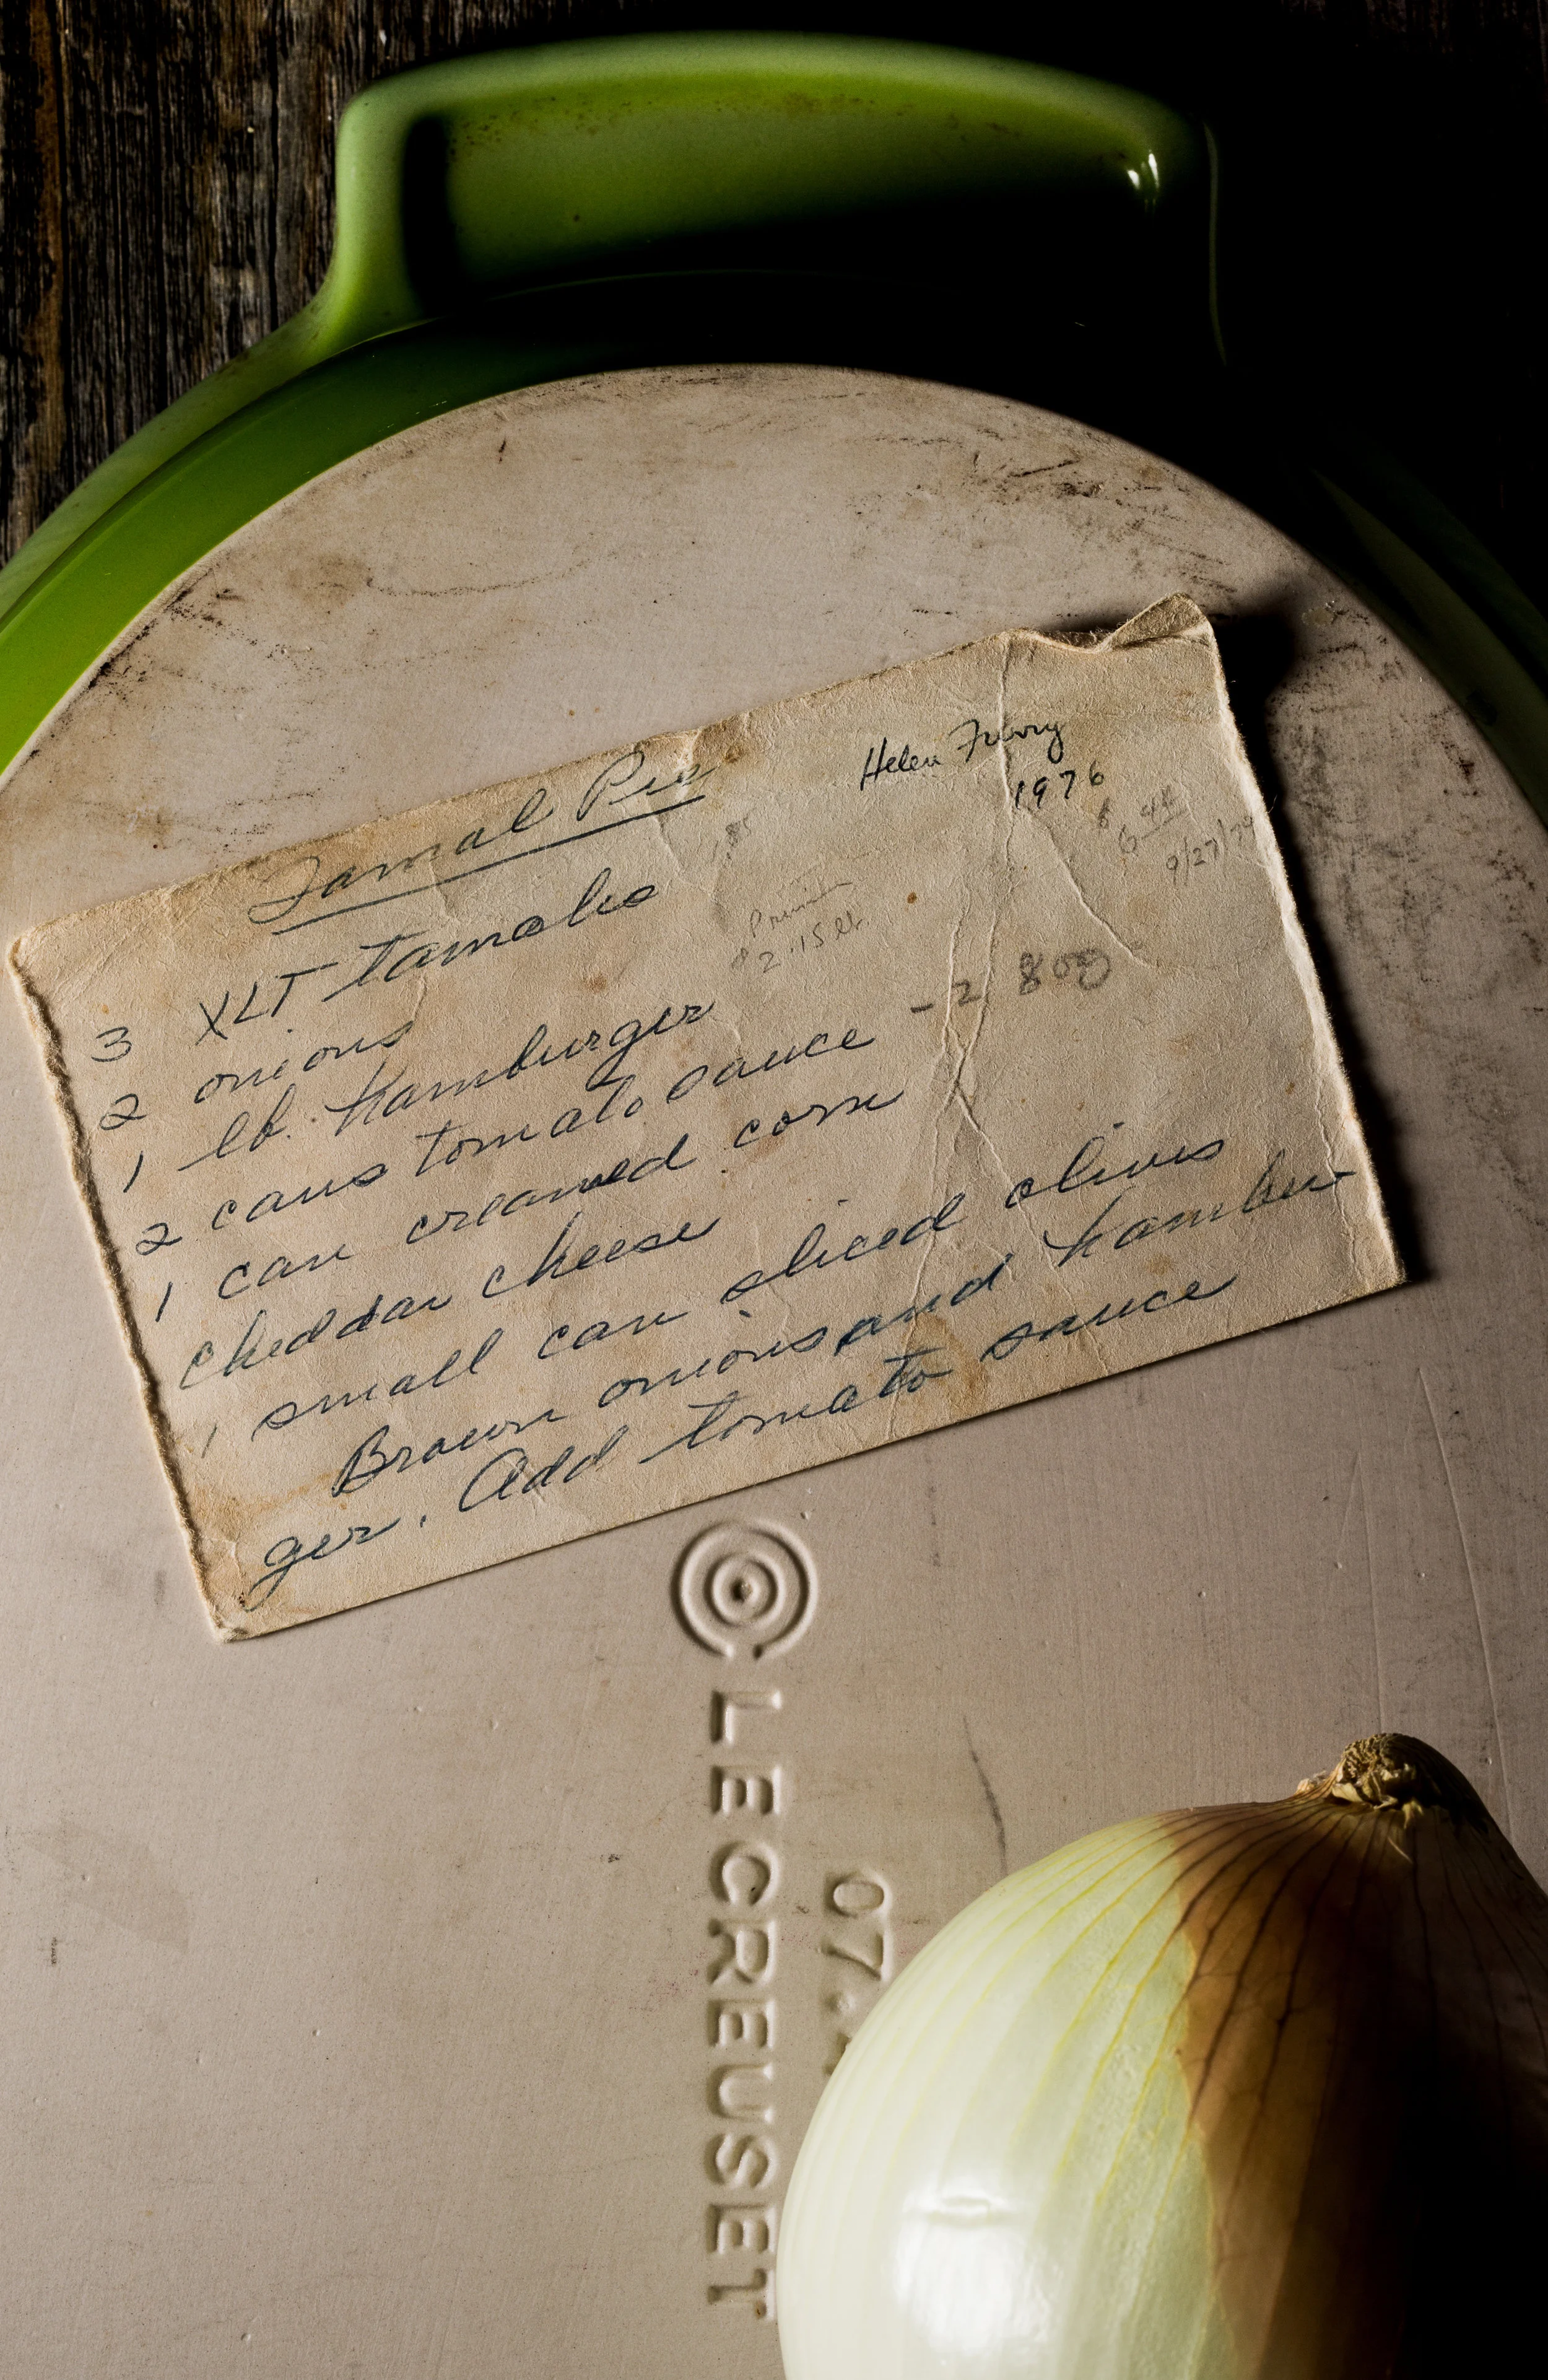 Tamal Pie
Helen
1976
9/27/79
3 XLT tamales
2 onions
1 lb. hamburger
2 cans tomato sauce - 2 80g
1 can creamed corn
cheddar cheese
1 small can sliced olives
Brown onions and hambur
ger. Add tomato sauce
LE CREUSET
07.